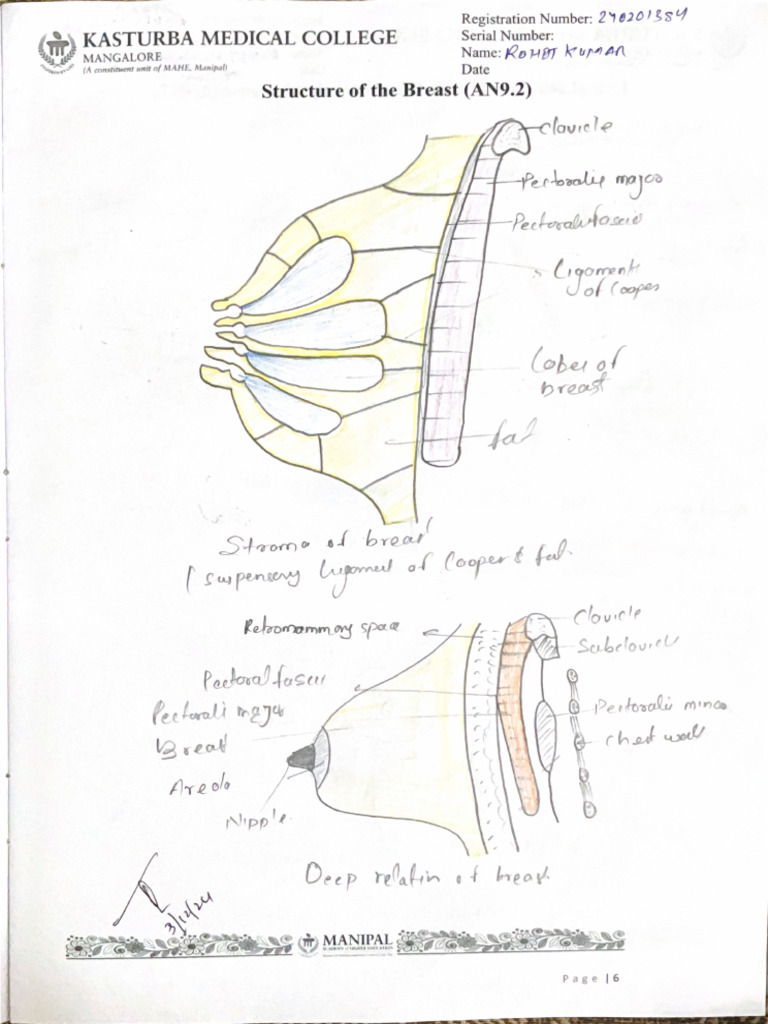 KASTURBA MEDICAL COLLEGE
MANGALORE
(A constituent unit of MAHE, Manipal)
Registration Number: 240201384
Serial Number:
Name: ROHIT KUMAR
Date
Structure of the Breast (AN9.2)
Clavicle
Pectoralis major
Pectoral fascia
Ligaments
of Cooper
Lobes of
breast
fat
Stroma of breast
(suspensory ligament of Cooper & fat.
Retromammary space
Clavicle
Subclavius
Pectoral fascia
Pectorali major
Pectoralis minor
Breast
Chest wall
Areola
Nipple
Deep relatin of breast.
3/12/24
MANIPAL
Page | 6